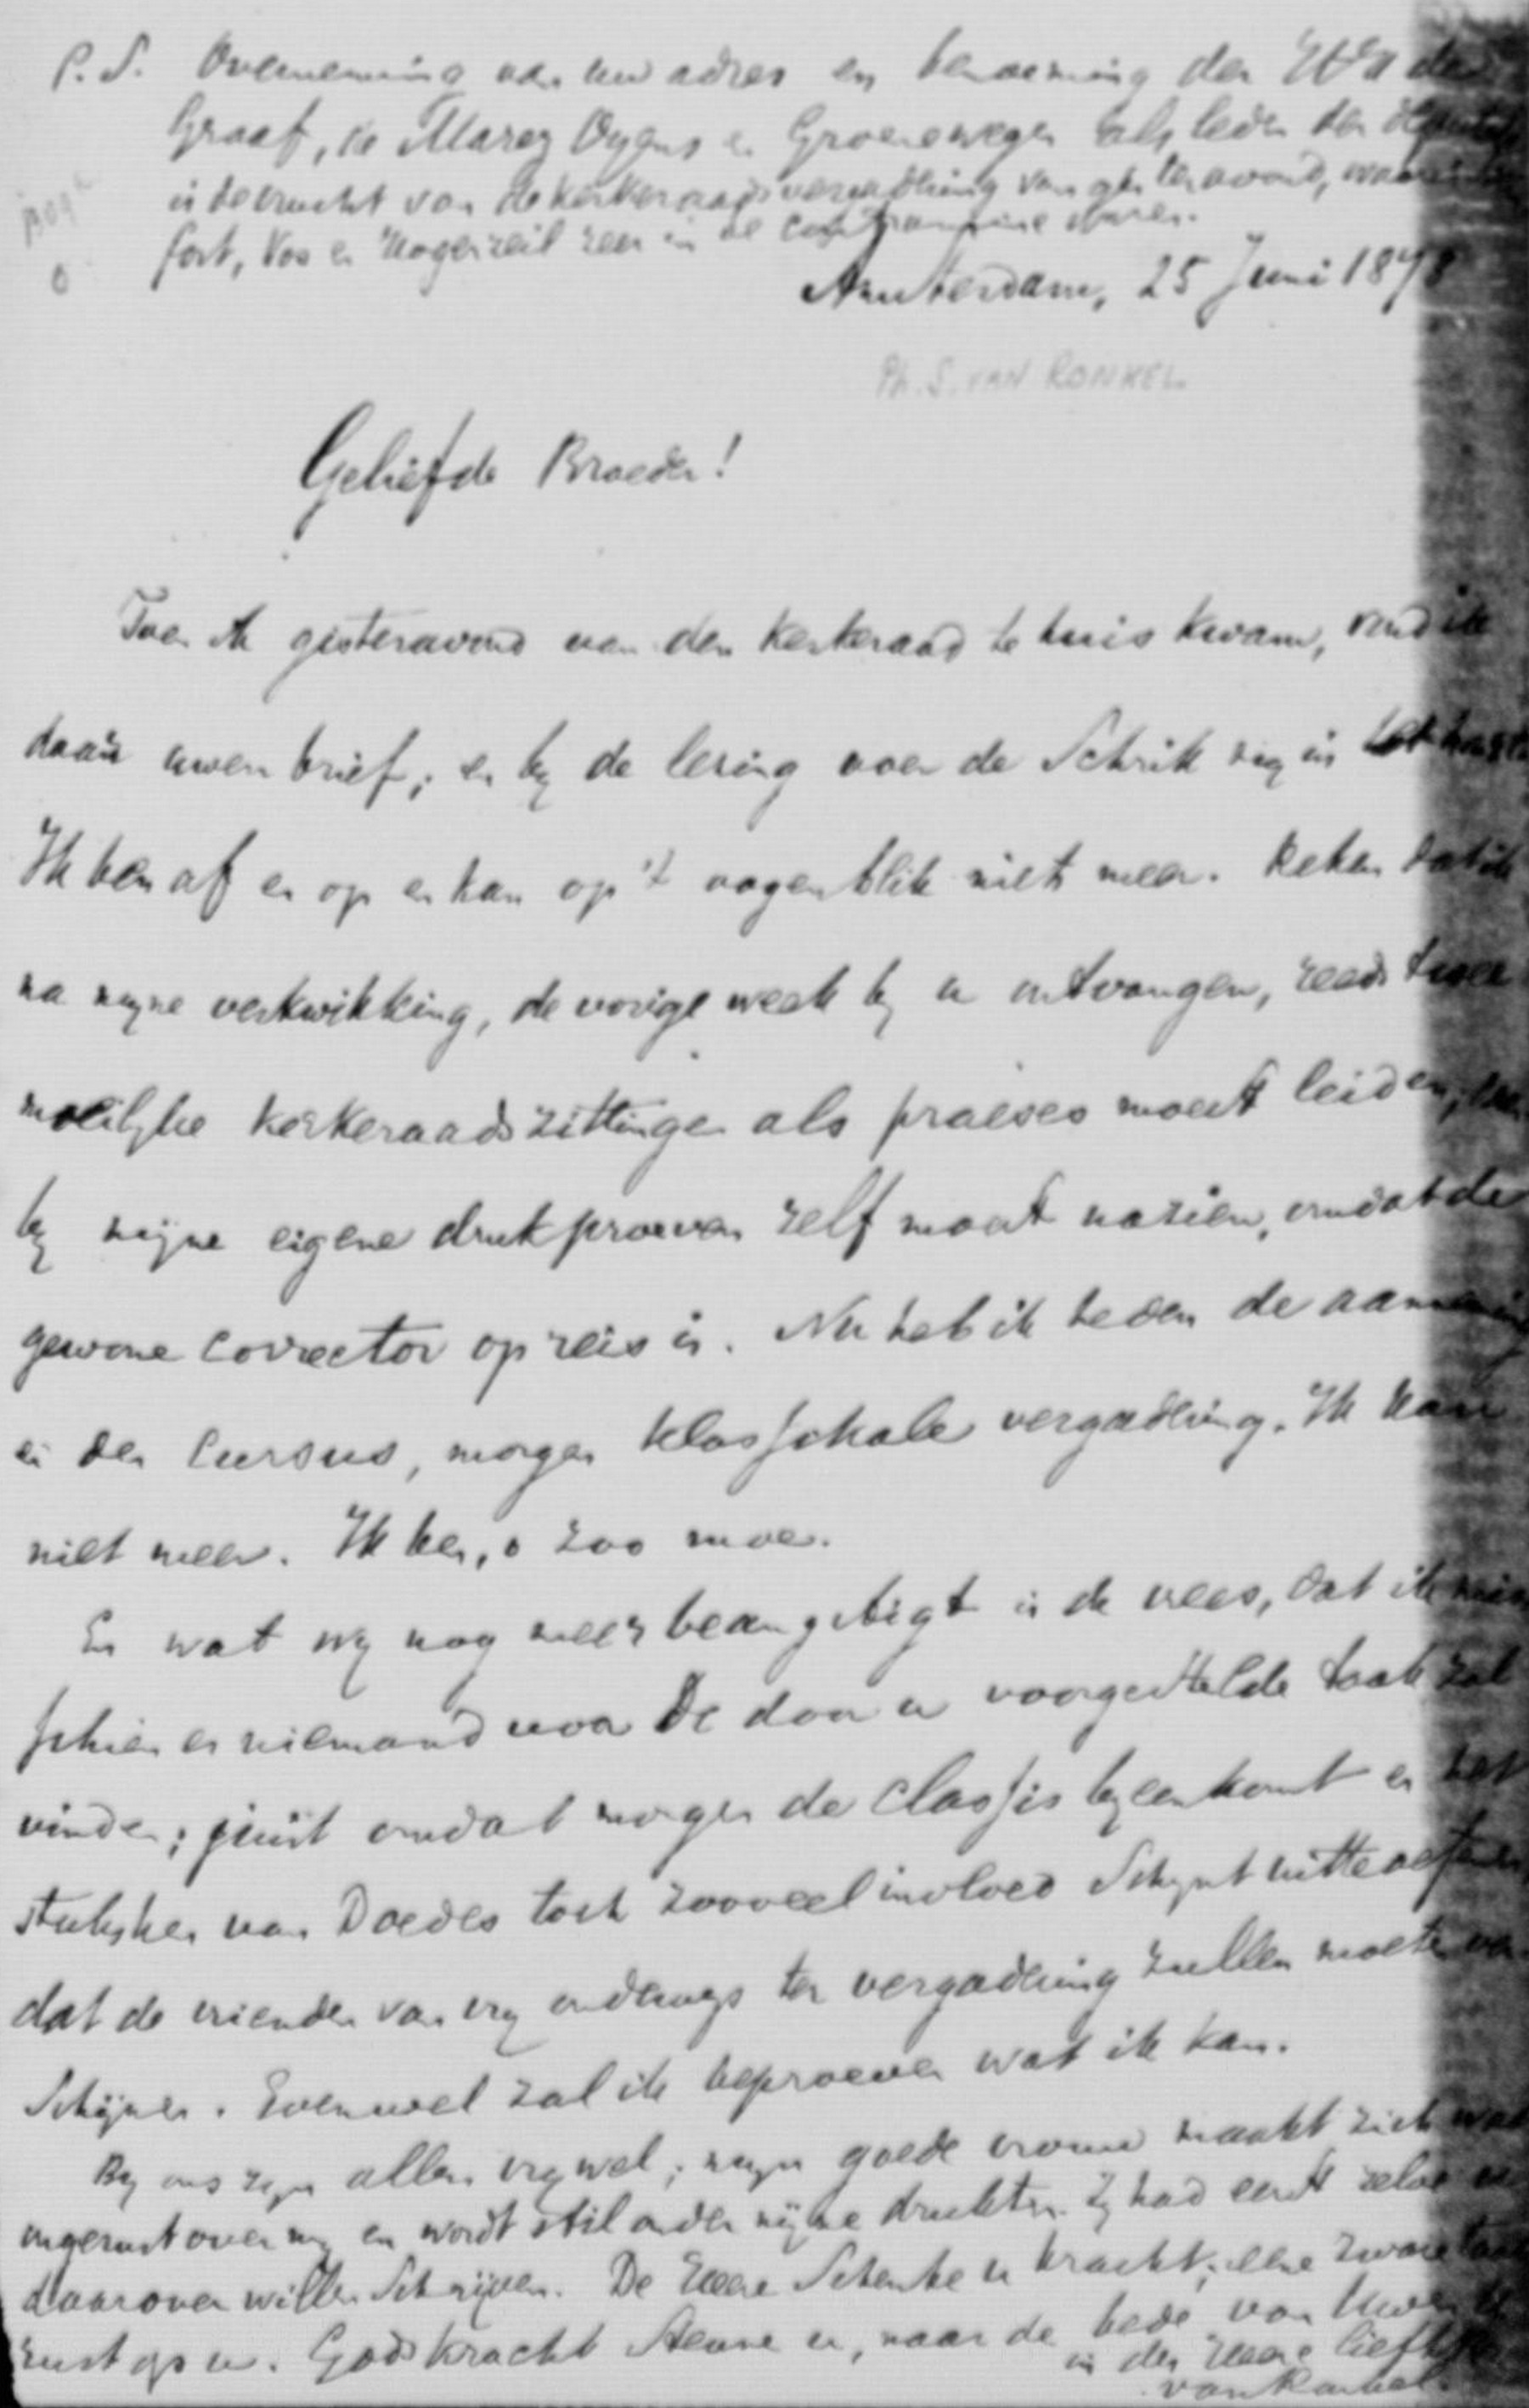 P.S. Overneming van uw adres en benoeming der
Graaf, de Marez Oyens en Groenewegen als leden der
is de vrucht van de kerkeraadsvergadering van gisteravond,
fort, Vos en Hogerzeil zeer in de contramine waren.
Amsterdam, 25 Juni 1878
Ph. S. VAN RONKEL
Geliefde Broeder!
Toen ik gisteravond van den Kerkeraad te huis kwam, vond ik
daar uwen brief; en by de lezing voer de Schrik my in
Ik ben af en op en kan op 't oogenblik niet meer. Reken dat ik
na myne verkwikking, de vorige week by u ontvangen, reeds twee
moeilyke Kerkeraadszittingen als praeses moest leiden,
by mijne eigene drukproeven zelf moest nazien, omdat de
gewone Corrector op reis is. Nu heb ik heden de
en den Cursus, morgen Klassikale vergadering. Ik kan
niet meer. Ik ben, o zoo moe.
En wat my nog meer beangstigt is de vrees, dat ik mis
schien er niemand voor De door u voorgestelde taak zal
vinden; juist omdat morgen de Classis byeenkomt en het
stukske van Doedes toch zooveel invloed Schynt uitteoefenen
dat de vrienden van vry onderwys ter vergadering zullen moeten ver-
Schijnen. Evenwel zal ik beproeven wat ik kan.
By ons zyn allen vry wel; myn goede vrouw maakt zich wat
ongerust over my en wordt stil onder mijne drukten. Zy had eerst zelve
daarover willen Schrijven. De Heere Schenke u kracht; eene zware taak
rust op u. Gods kracht Steune u, naar de bede van Uwen
in den Heere liefh.
van Ronkel.